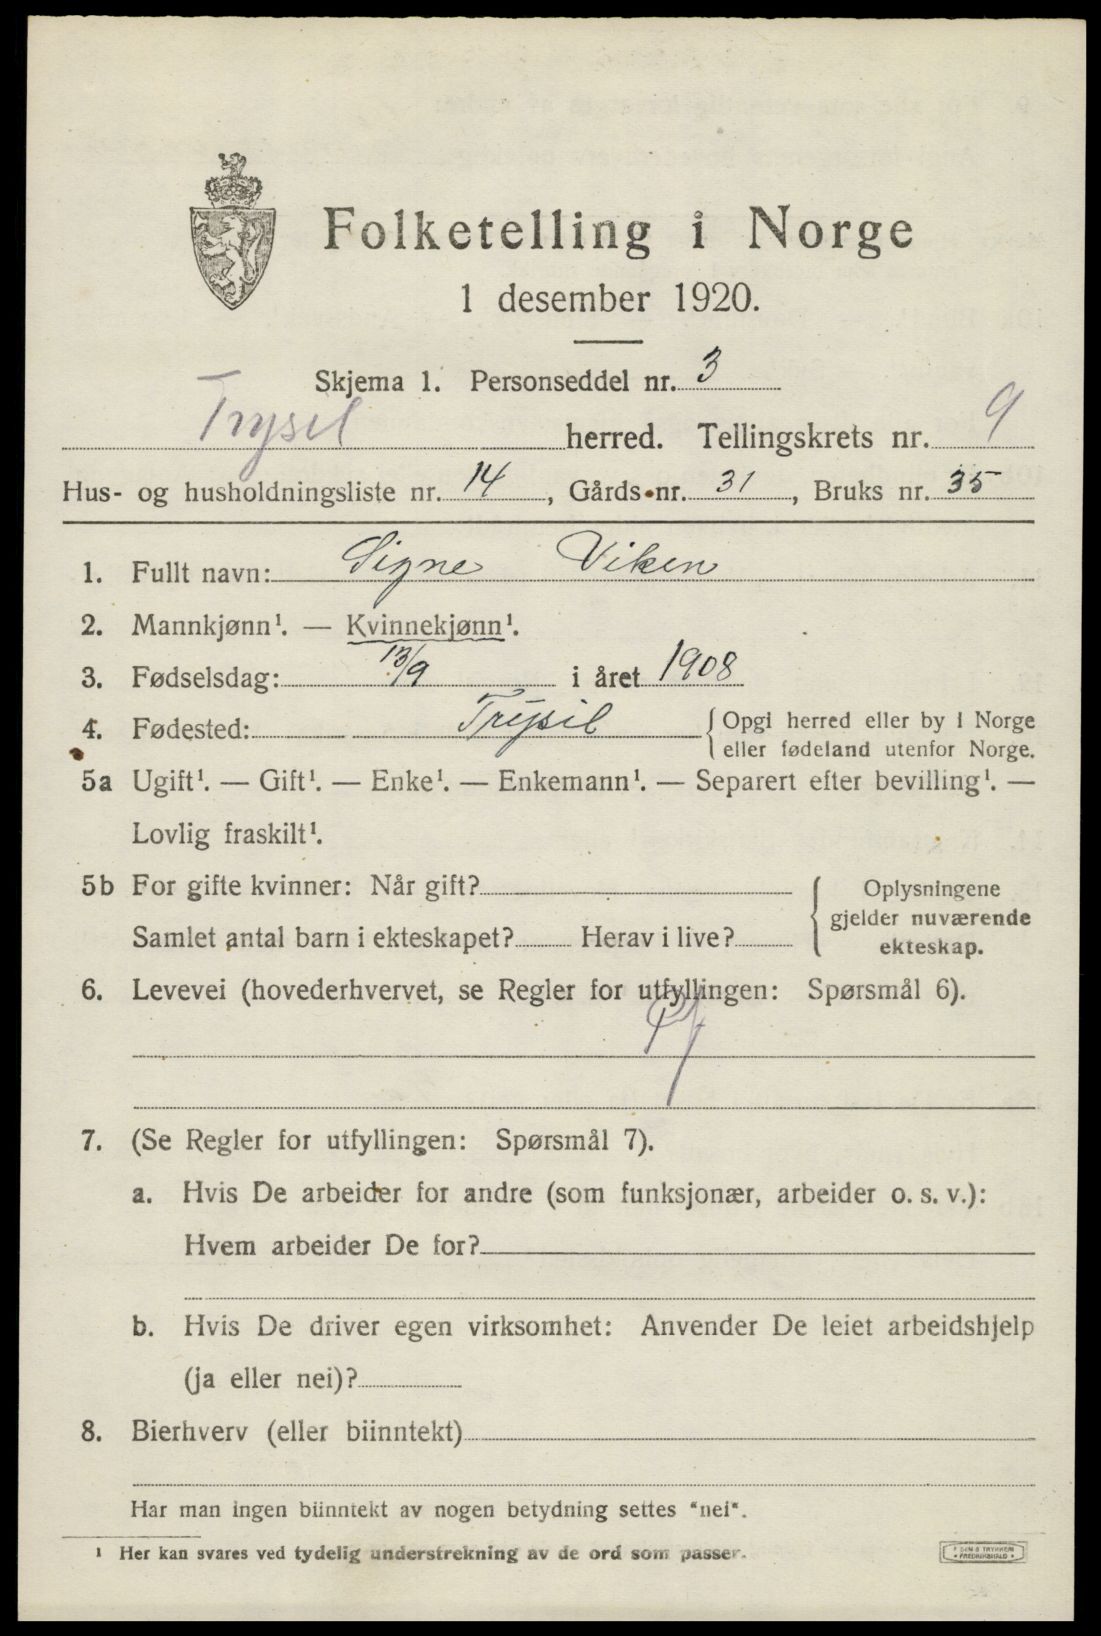 Folketelling i Norge
1 desember 1920.
Skjema 1. Personseddel nr. 3
Trysil herred. Tellingskrets nr. 9
Hus- og husholdningsliste nr. 14, Gårds-nr. 31, Bruks nr. 35
1. Fullt navn: Signe Viken
2. Mannkjønn¹. — Kvinnekjønn¹.
3. Fødselsdag: 13/9 i året 1908
4. Fødested: Trysil { Opgi herred eller by i Norge
eller fødeland utenfor Norge.
5a Ugift¹. — Gift¹. — Enke¹. — Enkemann¹. — Separert efter bevilling¹. —
Lovlig fraskilt¹.
5b For gifte kvinner: Når gift?
Samlet antal barn i ekteskapet? Herav i live?
{ Oplysningene
gjelder nuværende
ekteskap.
6. Levevei (hovederhvervet, se Regler for utfyllingen: Spørsmål 6).
7. (Se Regler for utfyllingen: Spørsmål 7).
a. Hvis De arbeider for andre (som funksjonær, arbeider o. s. v.):
Hvem arbeider De for?
b. Hvis De driver egen virksomhet: Anvender De leiet arbeidshjelp
(ja eller nei)?
8. Bierhverv (eller biinntekt)
Har man ingen biinntekt av nogen betydning settes "nei".
¹ Her kan svares ved tydelig understrekning av de ord som passer.